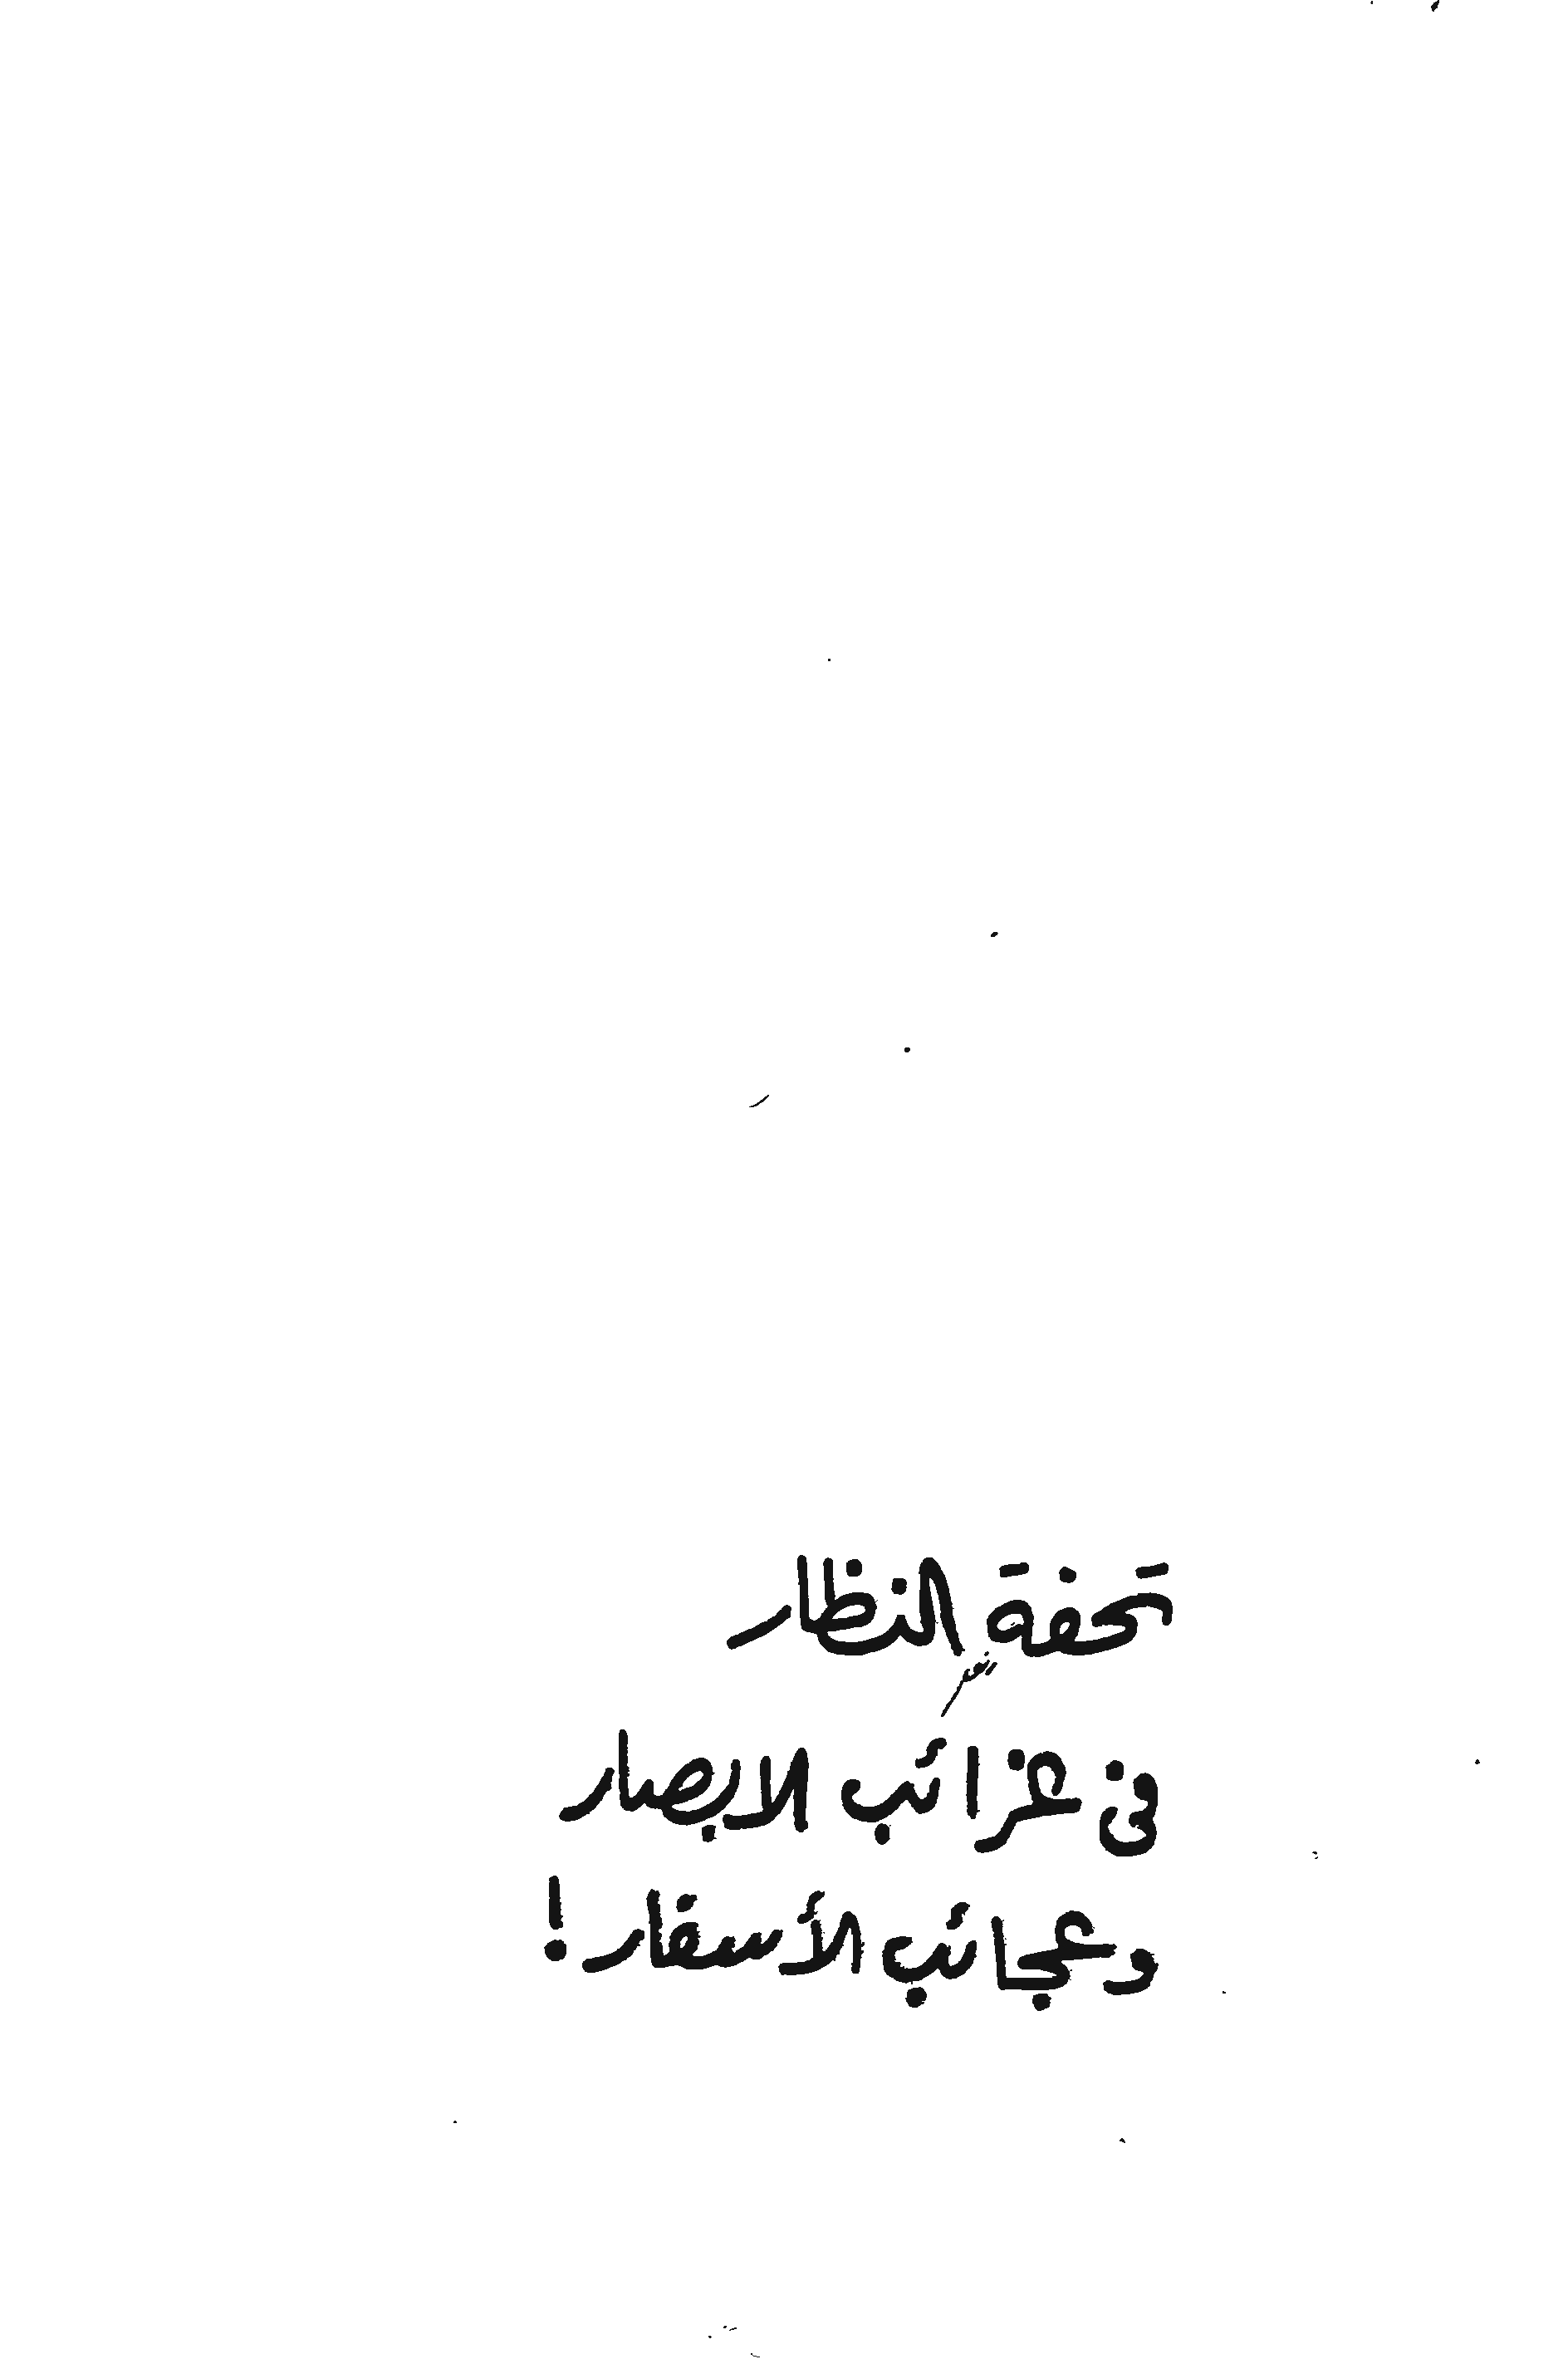 تحفة النظار
فى غرائب الابصار
وعجائب الأسفار!